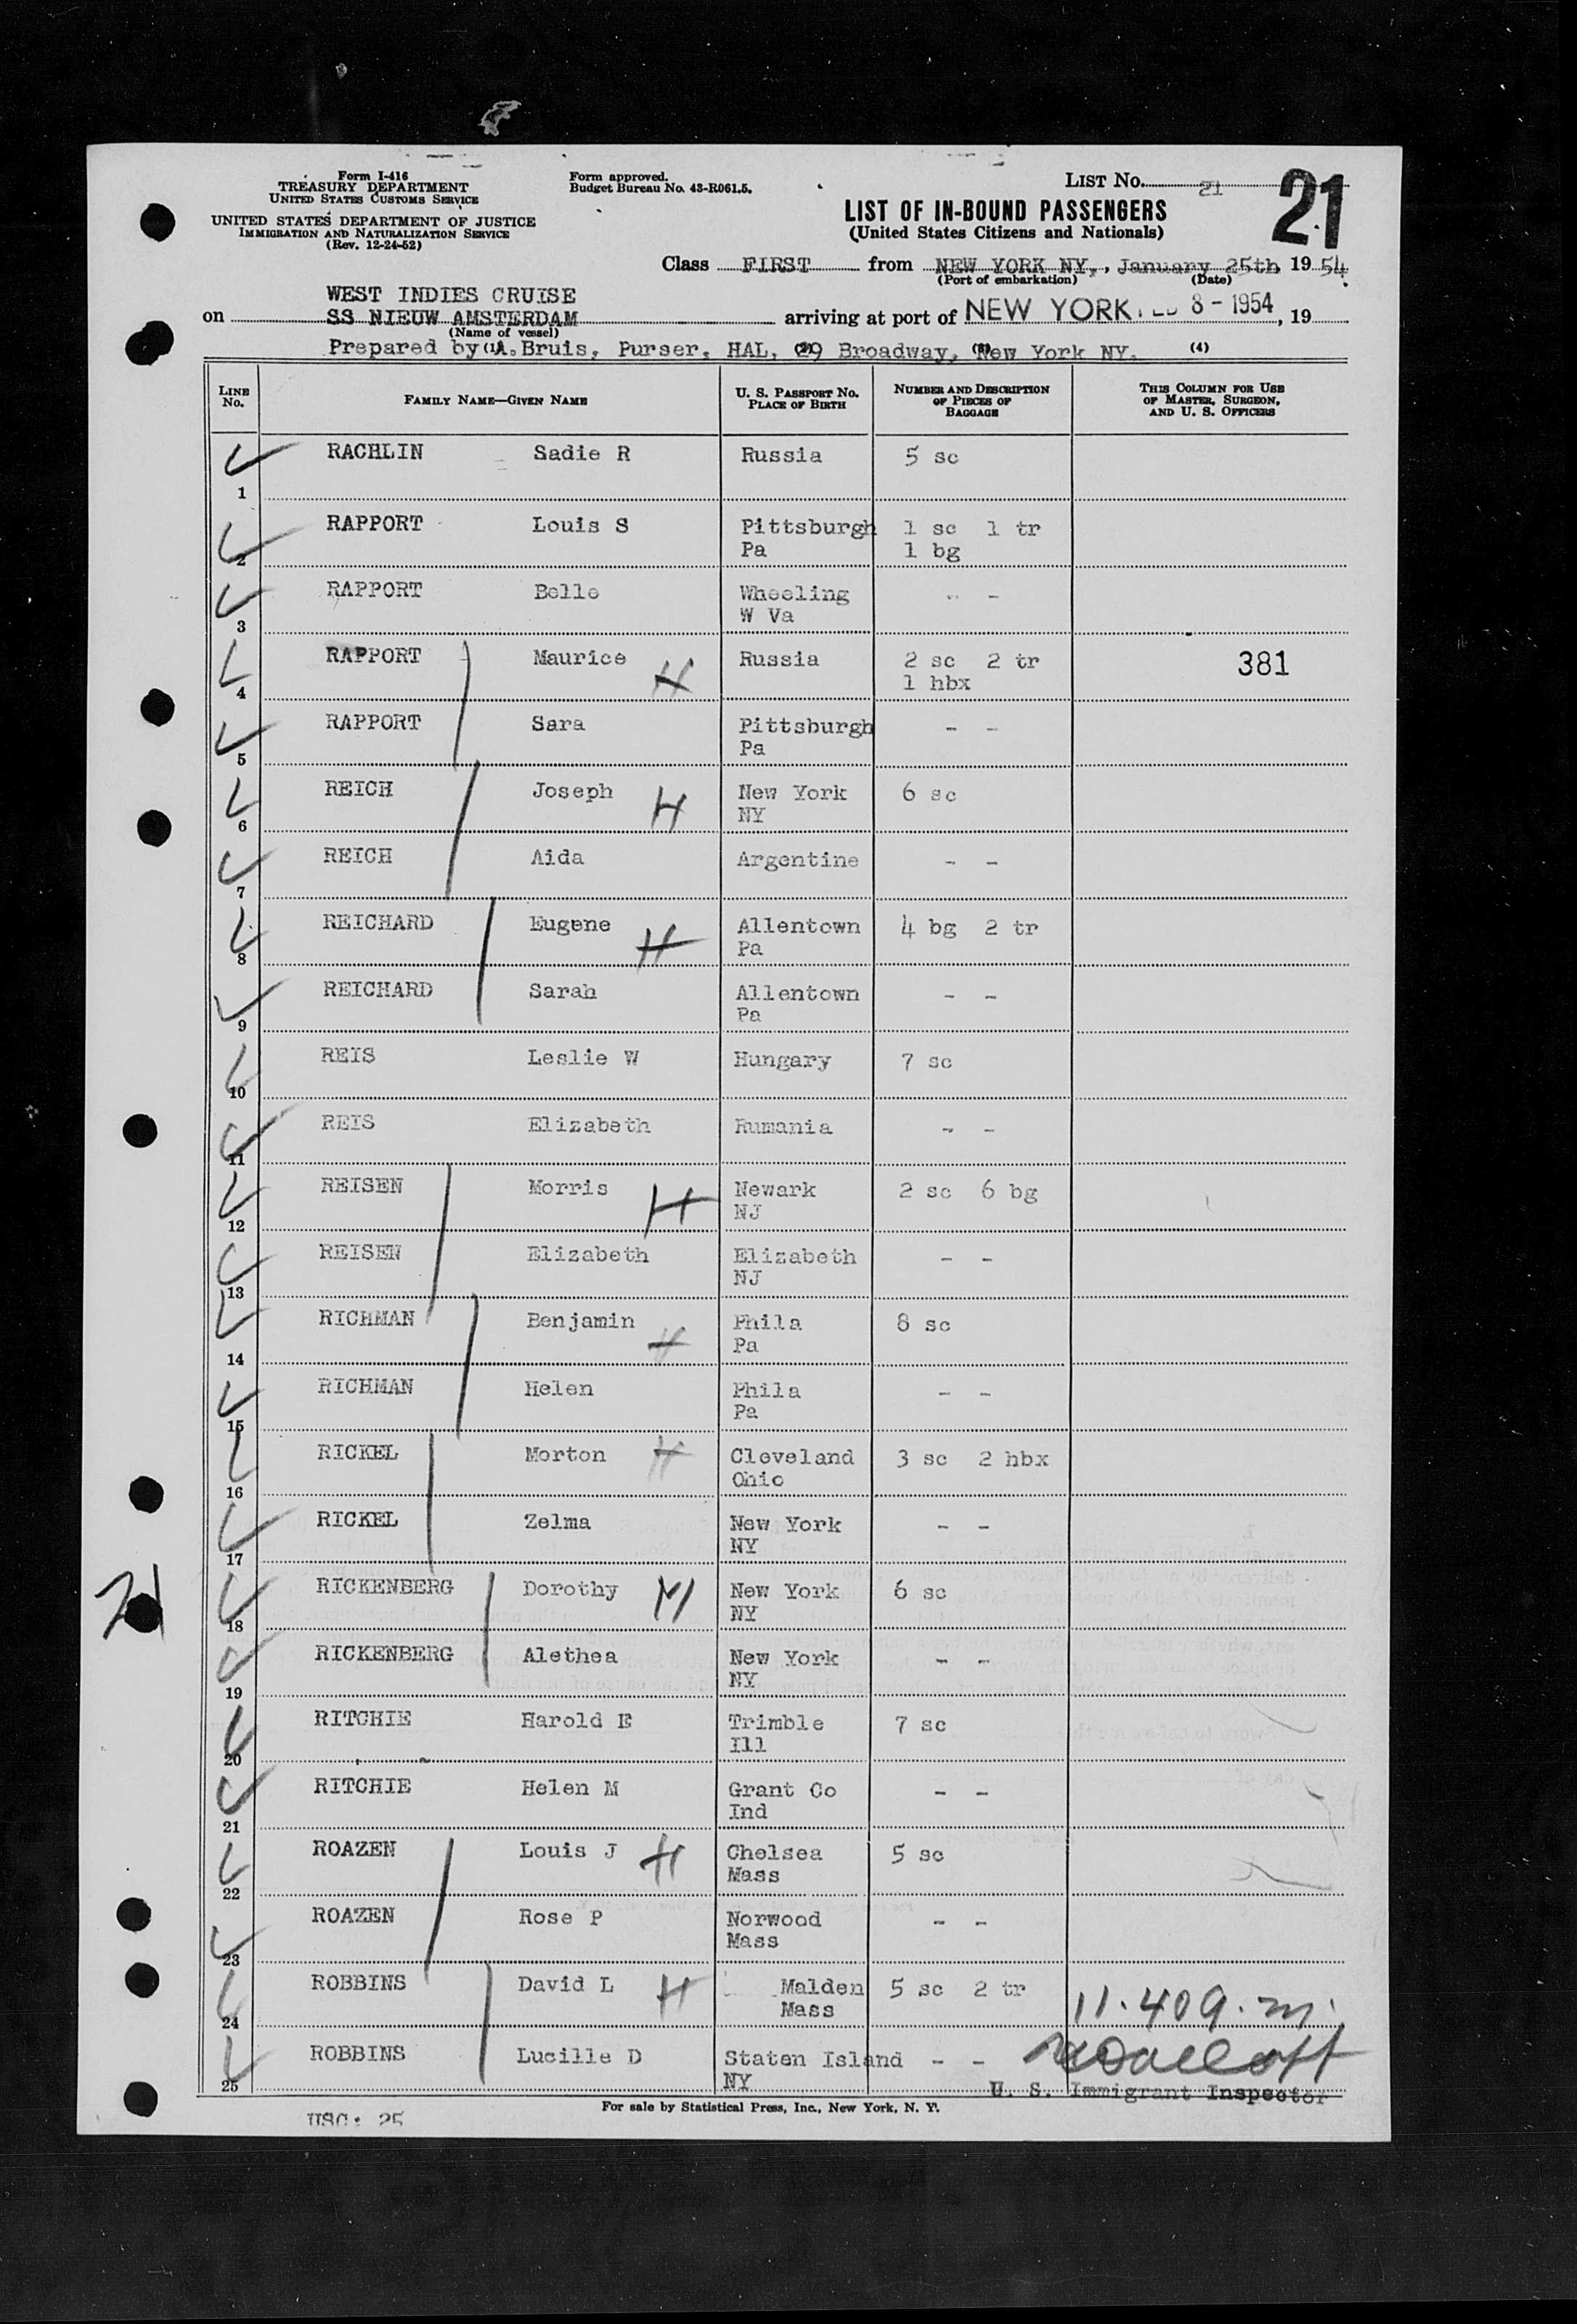 Form I-416
TREASURY DEPARTMENT
UNITED STATES CUSTOMS SERVICE
UNITED STATES DEPARTMENT OF JUSTICE
IMMIGRATION AND NATURALIZATION SERVICE
(Rev. 12-24-52)
Form approved.
Budget Bureau No. 43-R061.5.
LIST No. 21
21
LIST OF IN-BOUND PASSENGERS
(United States Citizens and Nationals)
Class FIRST from NEW YORK NY., January 25th, 1954
(Port of embarkation) (Date)
WEST INDIES CRUISE
on SS NIEUW AMSTERDAM arriving at port of NEW YORK 8-1954, 19
(Name of vessel)
Prepared by (1)A. Bruis, Purser, HAL, (2)29 Broadway, (3)New York NY. (4)
LINE No. FAMILY NAME—GIVEN NAME U. S. PASSPORT No. PLACE OF BIRTH NUMBER AND DESCRIPTION OF PIECES OF BAGGAGE THIS COLUMN FOR USE OF MASTER, SURGEON, AND U. S. OFFICERS
1 RACHLIN Sadie R Russia 5 sc
2 RAPPORT Louis S Pittsburgh Pa 1 sc 1 tr 1 bg
3 RAPPORT Belle Wheeling W Va - -
4 RAPPORT Maurice H Russia 2 sc 2 tr 1 hbx 381
5 RAPPORT Sara Pittsburgh Pa - -
6 REICH Joseph H New York NY 6 sc
7 REICH Aida Argentine - -
8 REICHARD Eugene H Allentown Pa 4 bg 2 tr
9 REICHARD Sarah Allentown Pa - -
10 REIS Leslie W Hungary 7 sc
11 REIS Elizabeth Rumania - -
12 REISEN Morris H Newark NJ 2 sc 6 bg
13 REISEN Elizabeth Elizabeth NJ - -
14 RICHMAN Benjamin H Phila Pa 8 sc
15 RICHMAN Helen Phila Pa - -
16 RICKEL Morton H Cleveland Ohio 3 sc 2 hbx
17 RICKEL Zelma New York NY - -
21
18 RICKENBERG Dorothy M New York NY 6 sc
19 RICKENBERG Alethea New York NY - -
20 RITCHIE Harold E Trimble Ill 7 sc
21 RITCHIE Helen M Grant Co Ind - -
22 ROAZEN Louis J H Chelsea Mass 5 sc
23 ROAZEN Rose P Norwood Mass - -
24 ROBBINS David L H Malden Mass 5 sc 2 tr 11.40 a.m.
25 ROBBINS Lucille D Staten Island NY - -
U. S. Immigrant Inspector
For sale by Statistical Press, Inc., New York, N. Y.
USC: 25